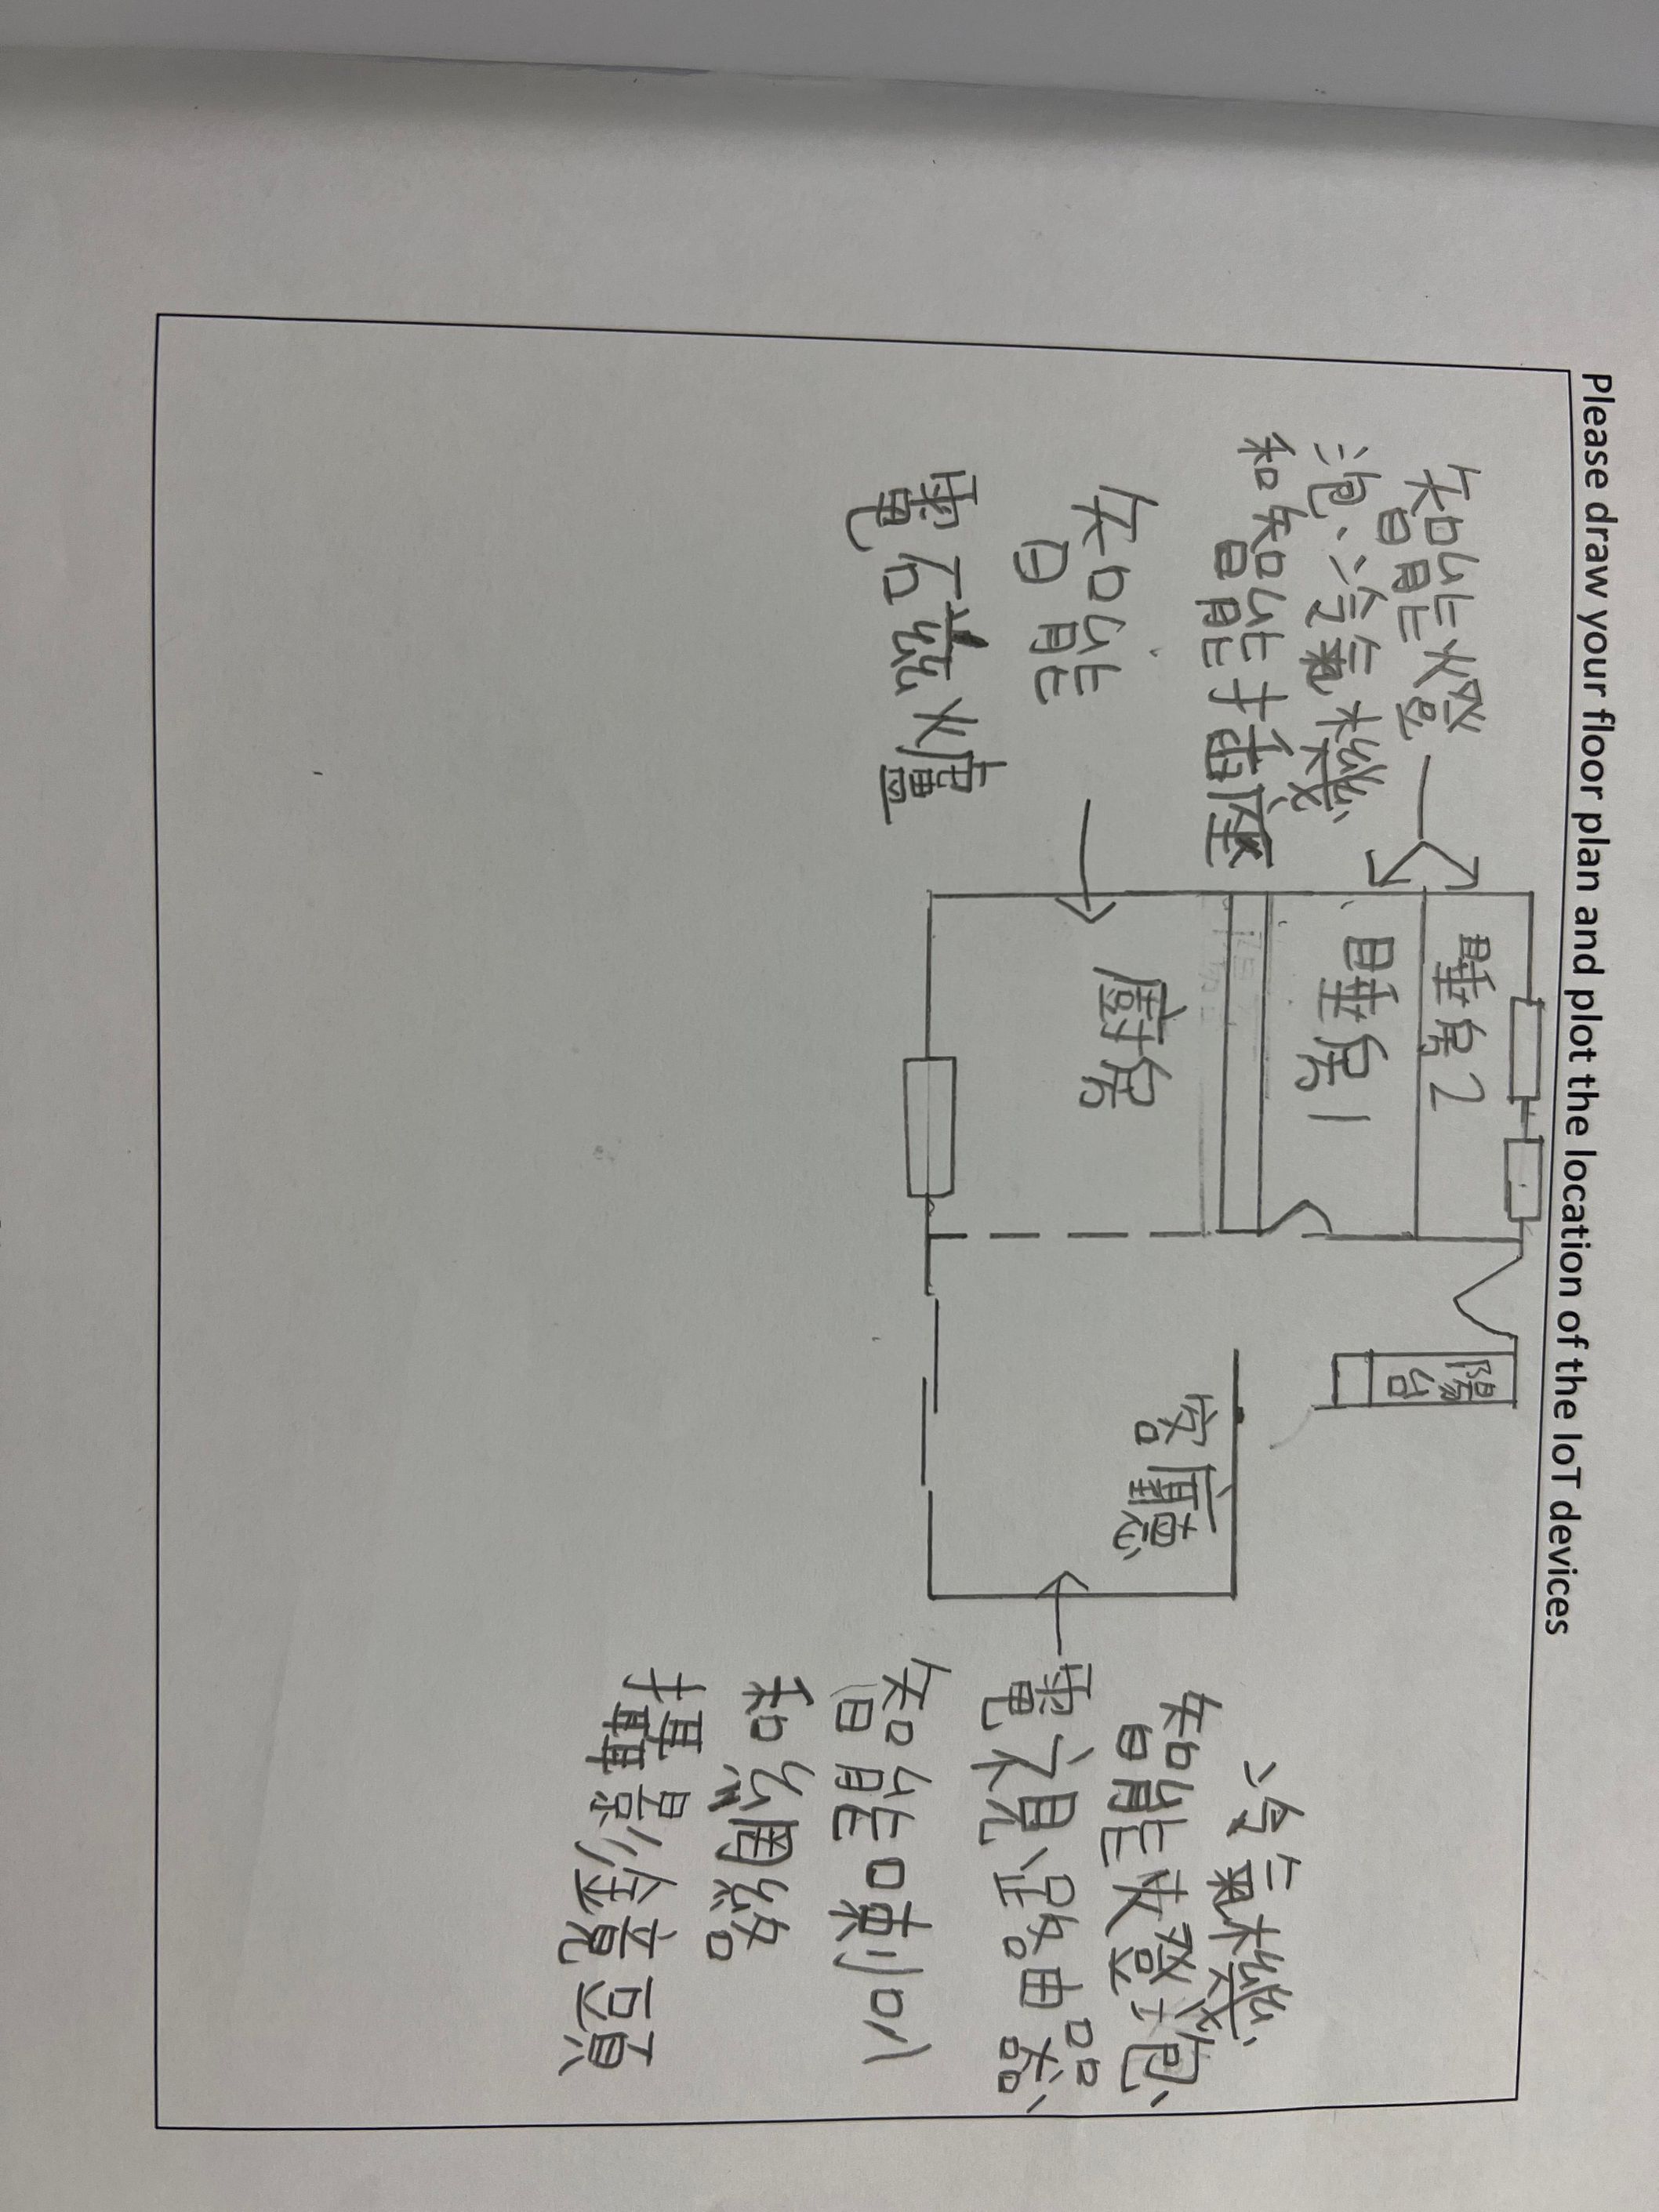 Please draw your floor plan and plot the location of the IoT devices
智能燈
泡、冷氣機
和智能插座
智能
電磁爐
睡房2
睡房1
廚房
陽台
客廳
冷氣機、
智能燈泡、
電視、路由器、
智能喇叭
和網絡
攝影鏡頭